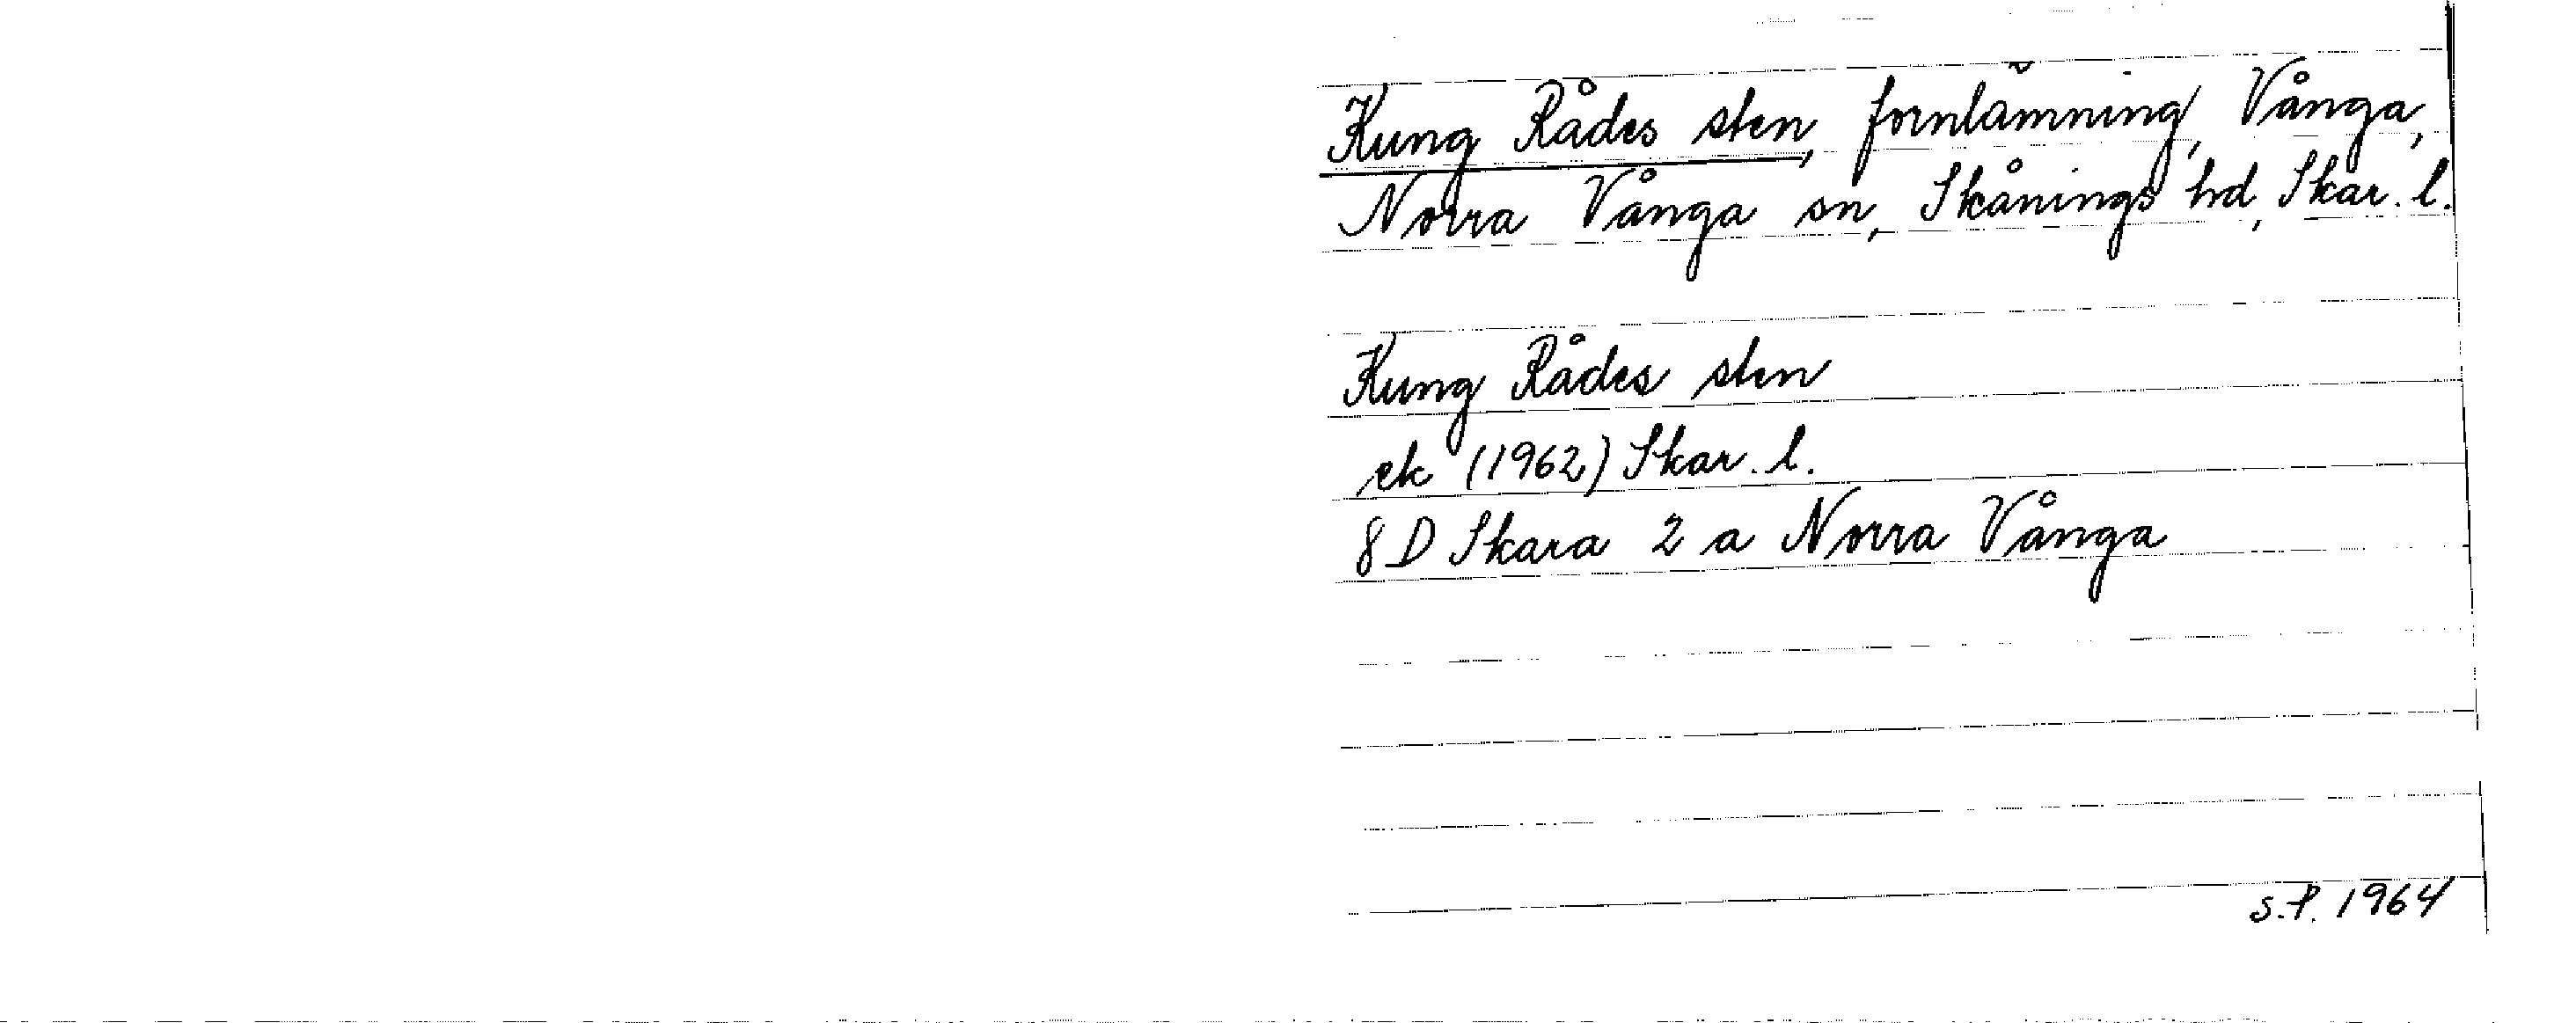 Kung Rådes sten, fornlämning, Vånga,
Norra Vånga sn, Skånings hd, Skar. l.
Kung Rådes sten
ek (1962) Skar. l.
8 D Skara 2 a Norra Vånga
S.P. 1964